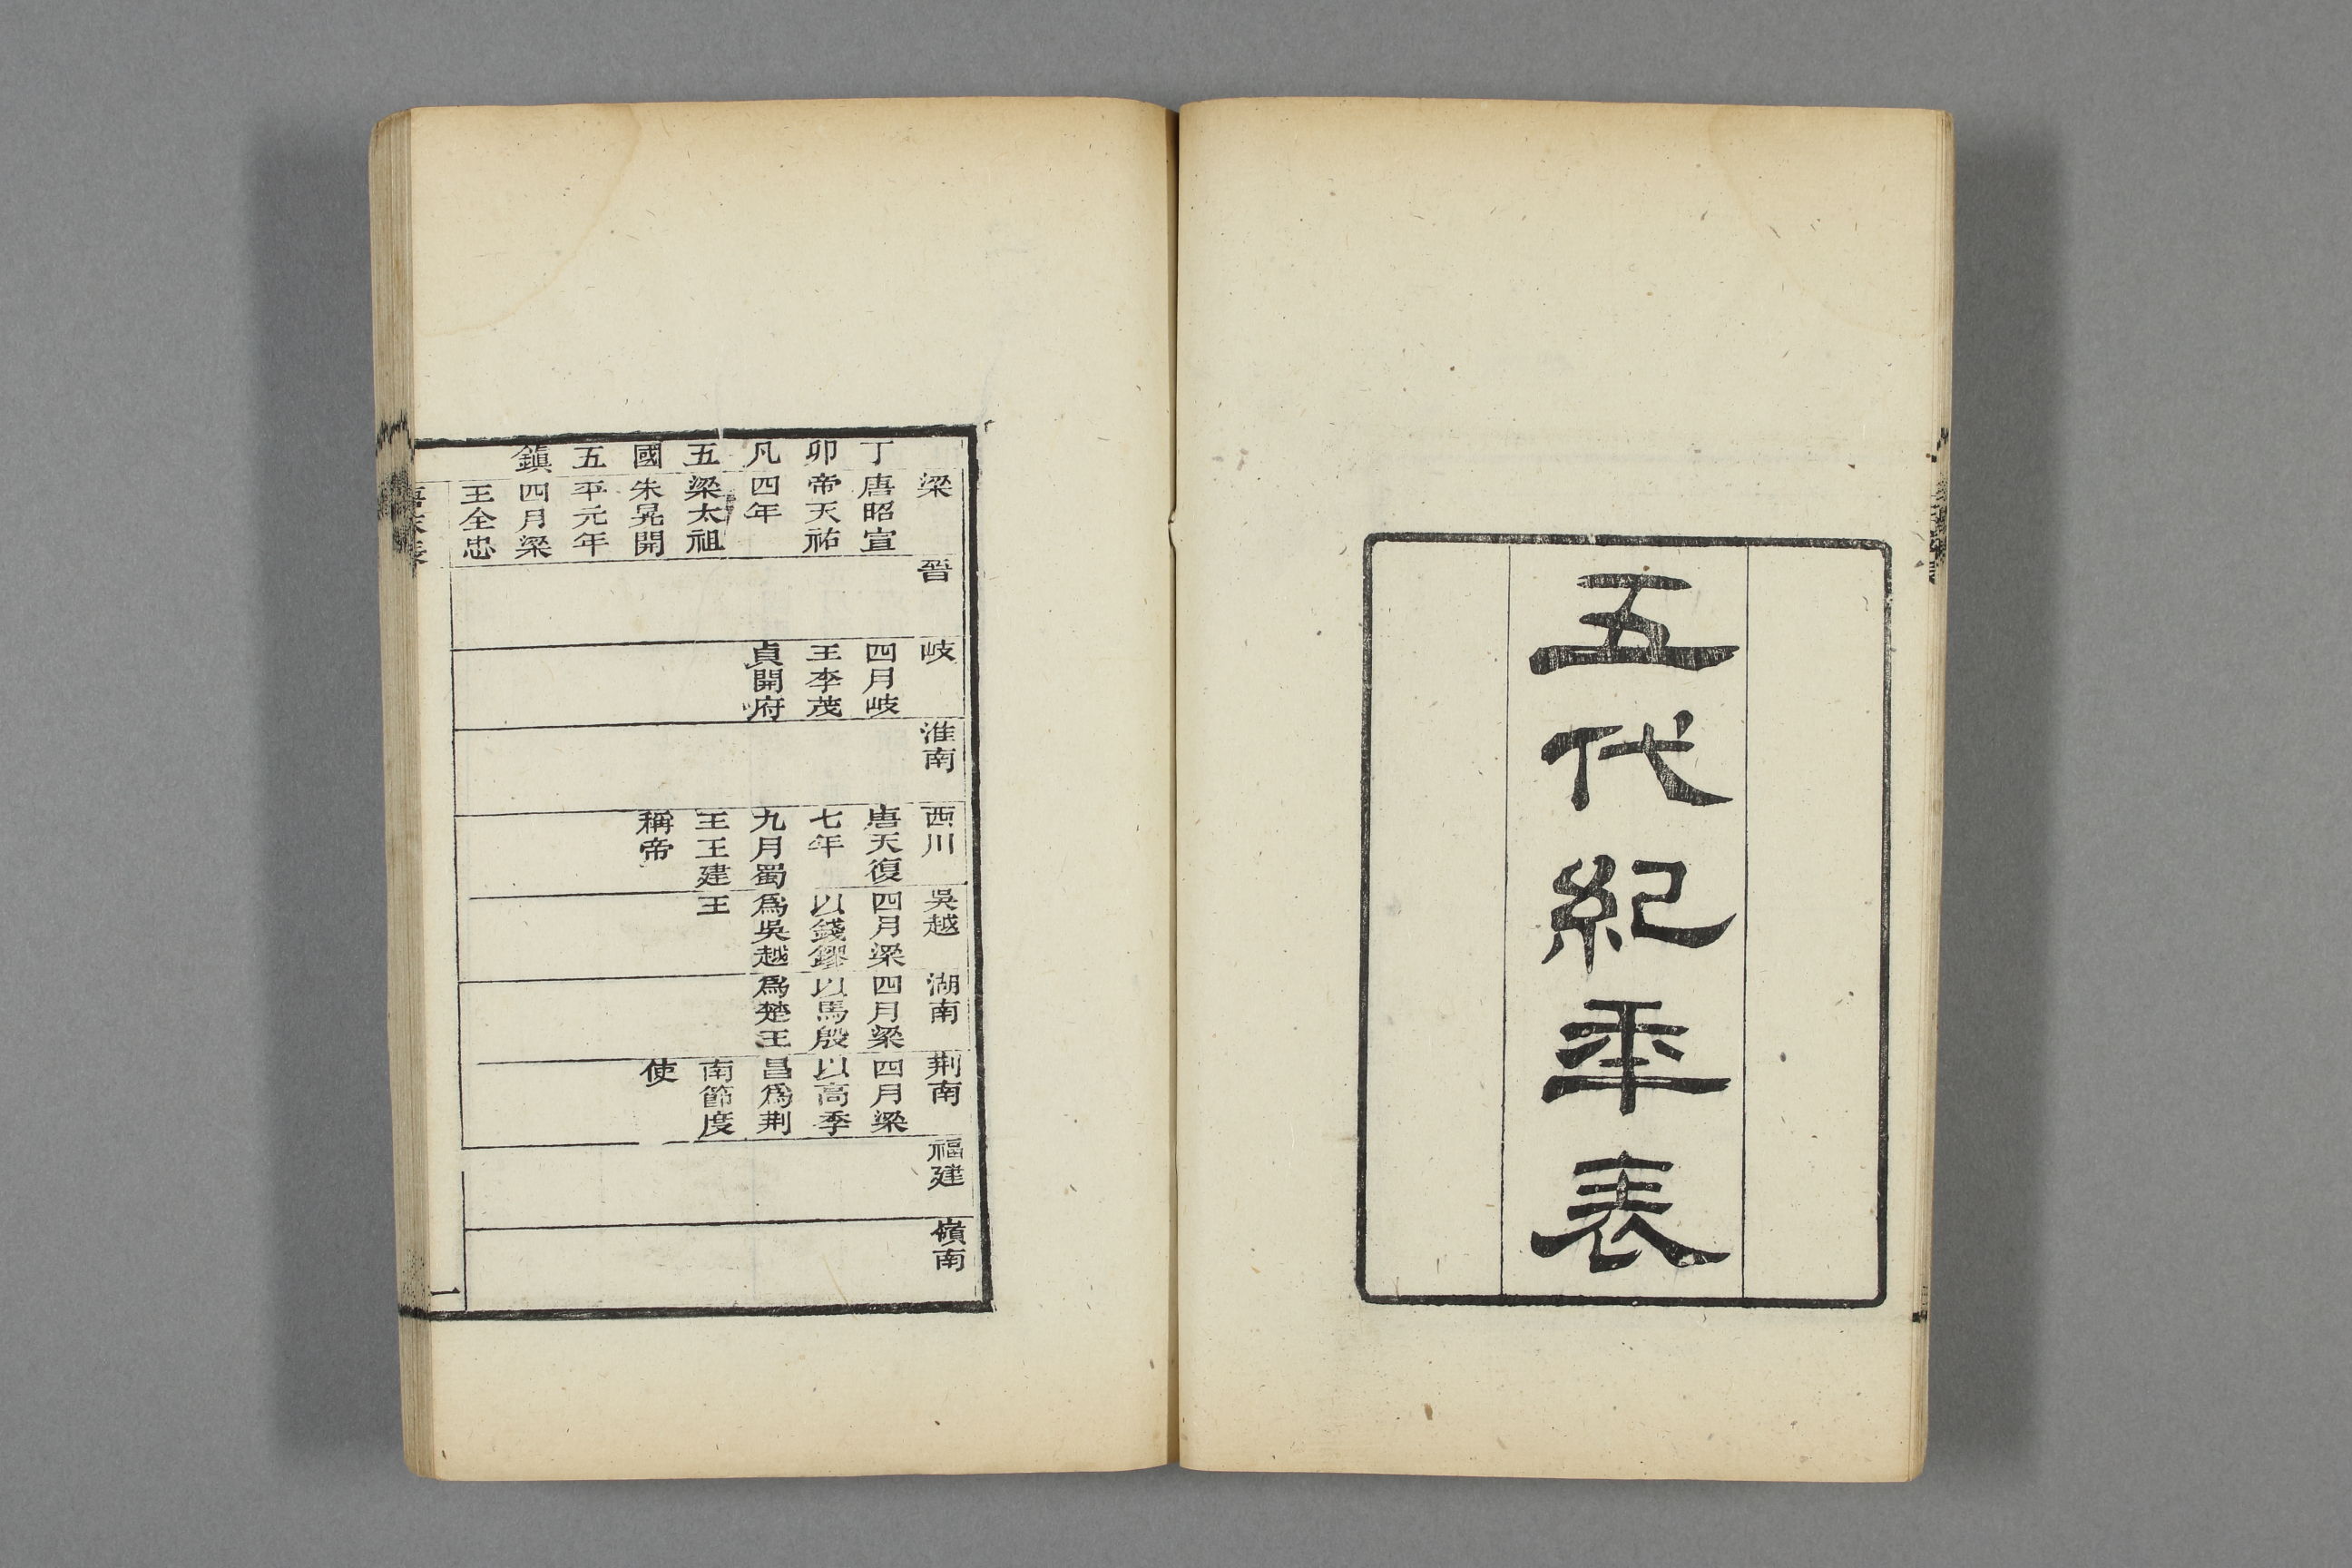 五代紀年表
梁
晉
岐
淮南
西川
吳越
湖南
荆南
福建
嶺南
丁
卯
凡
五
國
五
鎮
唐昭宣
帝天祐
四年
梁太祖
朱晃開
平元年
四月梁
王全忠
四月岐
王李茂
貞開府
唐天復
七年
九月蜀
王王建
稱帝
四月梁
以錢鏐
爲吳越
王
四月梁
以馬殷
爲楚王
四月梁
以高季
昌爲荆
南節度
使
一